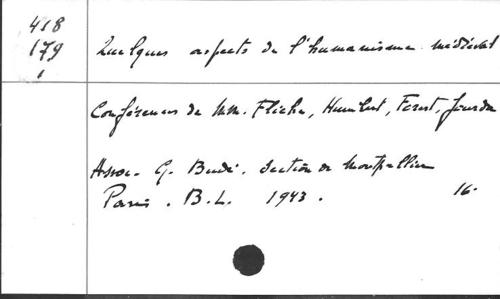 418
179 Quelques aspects de l'humanisme médiéval
1
Conférences de MM. Fliche, Humbert, Forest, Jourda
Assoc. G. Budé. Section de Montpellier
Paris. B.L. 1943. 16.